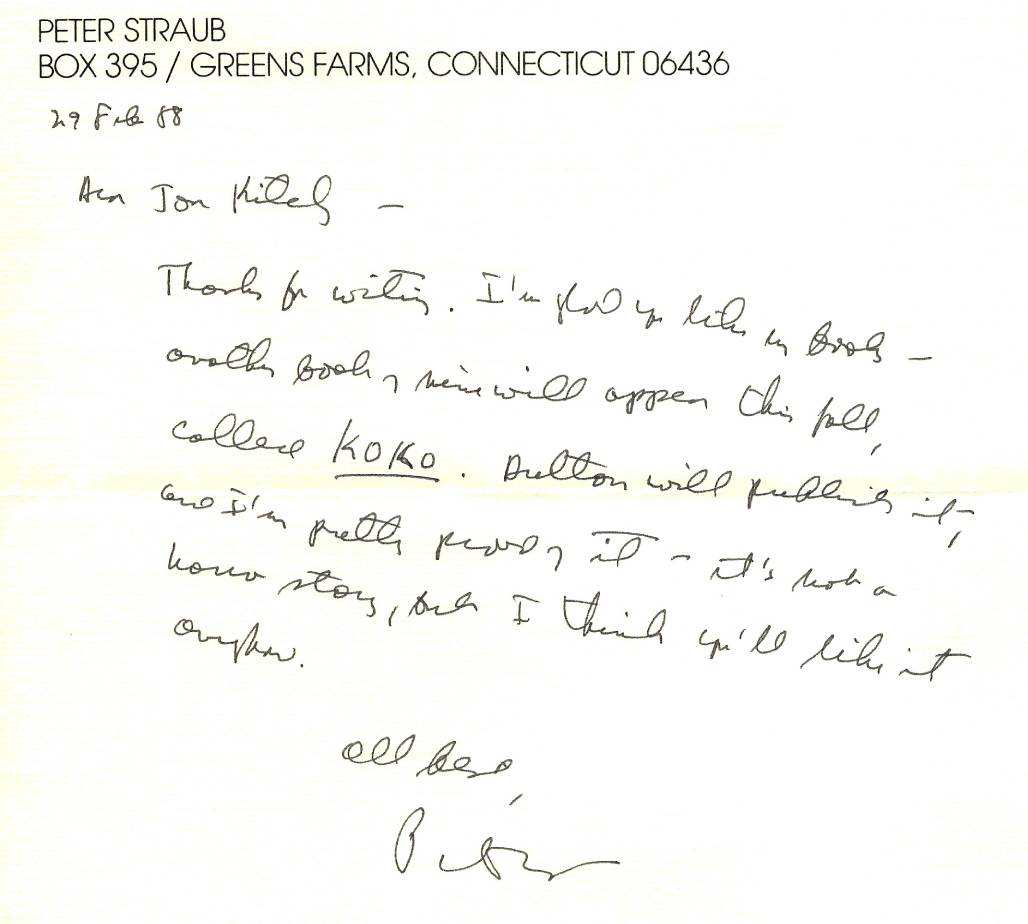 PETER STRAUB
BOX 395 / GREENS FARMS, CONNECTICUT 06436
29 Feb 88
Dear Jon —
Thanks for writing. I'm glad you like my books —
another book of mine will appear this fall,
called KOKO. Dutton will publish it,
and I'm pretty proud of it – it's not a
horror story, but I think you'll like it
anyhow.
All best,
Peter